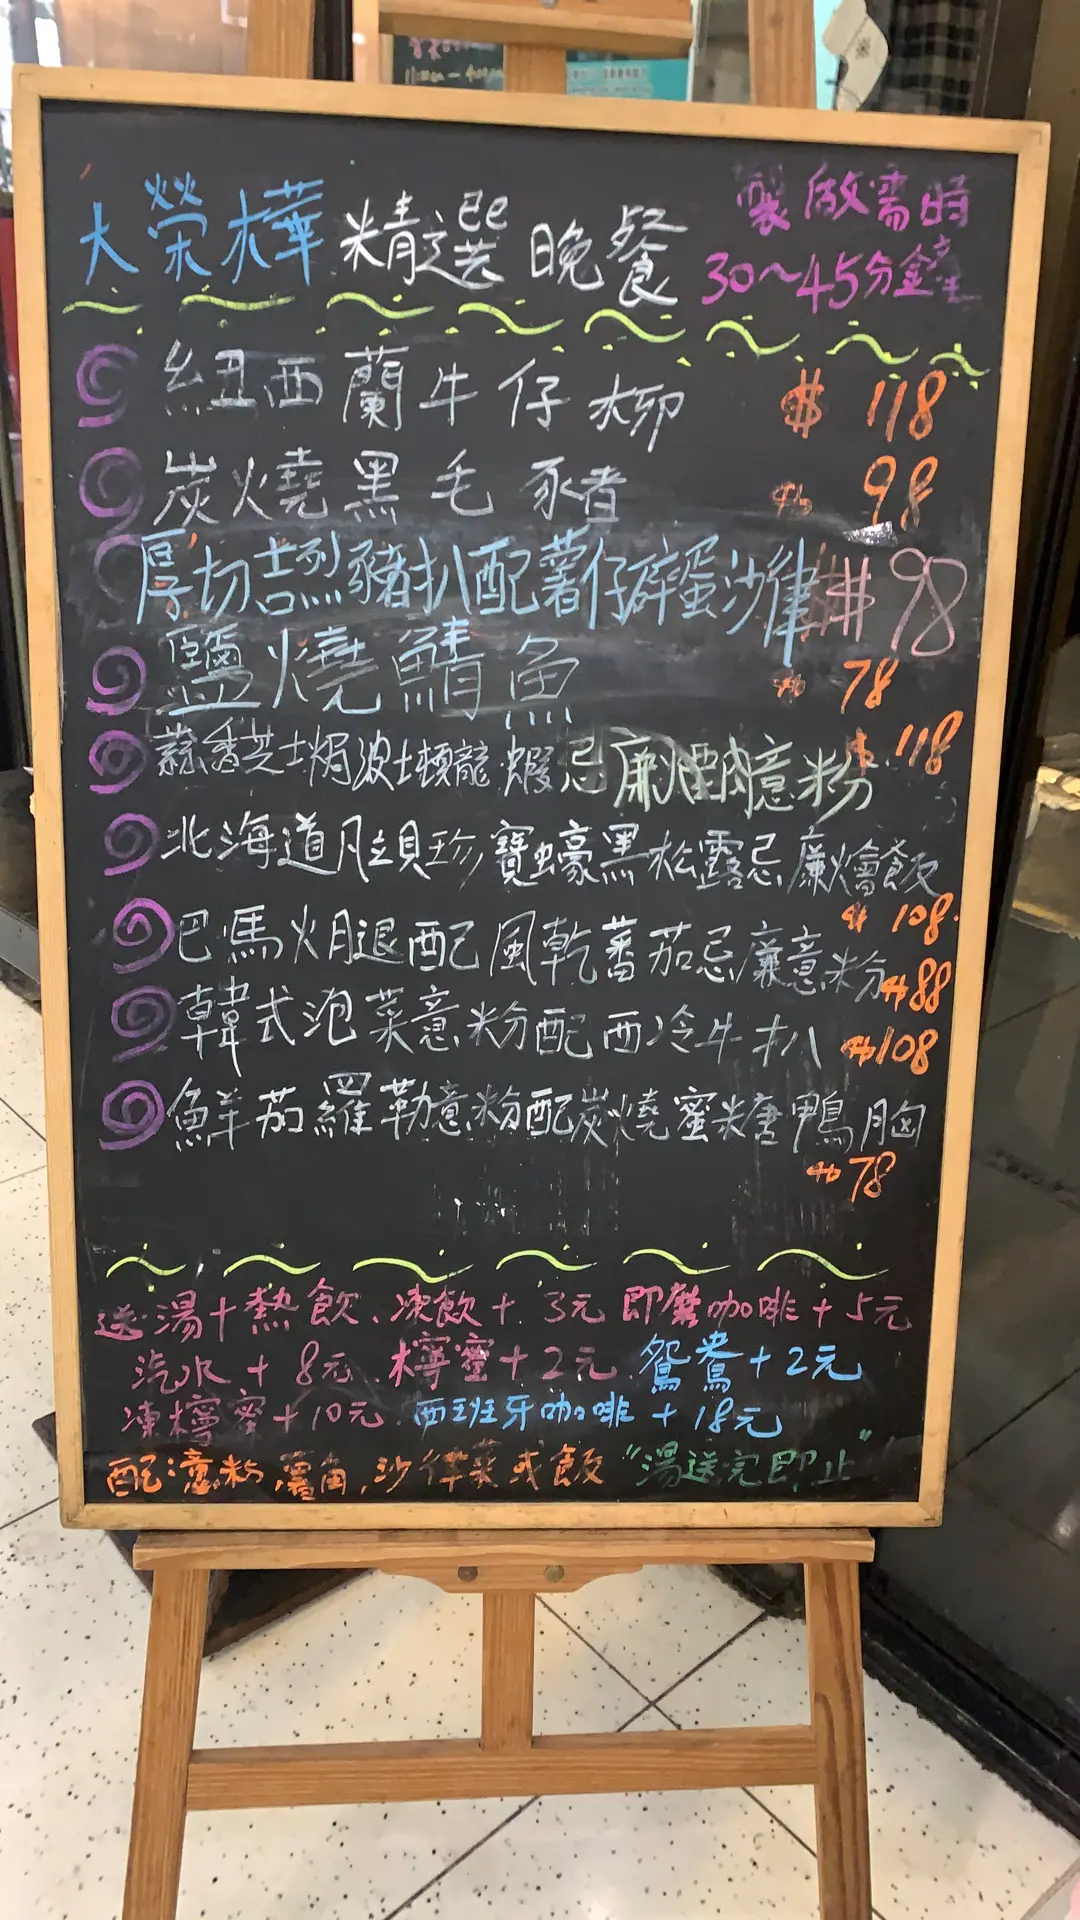 大榮樺 精選晚餐
製做需時
30～45分鐘
紐西蘭牛仔柳 $118
炭燒黑毛豬 $98
厚切吉烈豬扒配薯仔碎蛋沙律 $98
鹽燒鯖魚 $78
蒜香芝士焗波士頓龍蝦忌廉煙肉意粉 $118
北海道帆立貝珍寶蠔黑松露忌廉燴飯
$108
巴馬火腿配風乾蕃茄忌廉意粉 $88
韓式泡菜意粉配西冷牛扒 $108
鮮茄羅勒意粉配炭燒蜜糖鴨胸
$78
送湯+熱飲、凍飲+3元 即磨咖啡+5元
汽水+8元.檸蜜+2元.鴛鴦+2元
凍檸蜜+10元.西班牙咖啡+18元
配意粉,薯角,沙律菜或飯 "湯送完即止"